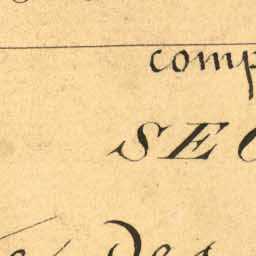 comp
SEC
des